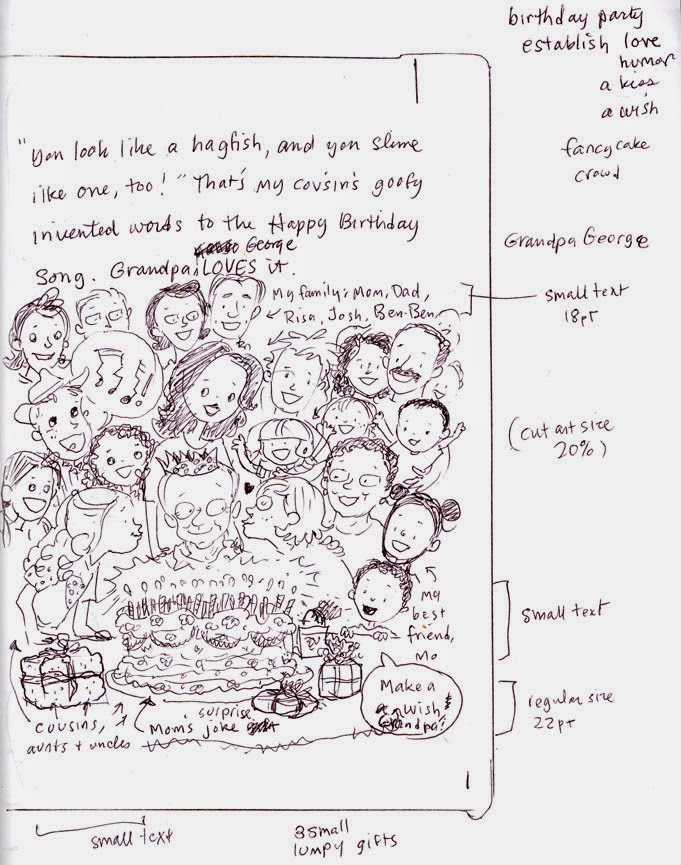 birthday party
establish love
humor
a kiss
a wish
fancy cake
crowd
"You look like a hagfish, and you slime
like one, too!" That's my cousin's goofy
invented words to the Happy Birthday
Song. Grandpa George LOVES it.
Grandpa George
My family: Mom, Dad,
Risa, Josh, Ben-Ben,
small text
18pt
(cut art size
20%)
my
best
friend,
Mo
small text
Make a
wish
Grandpa!
regular size
22pt
cousins,
aunts + uncles
surprise
Mom's joke
1
small text
3 small
lumpy gifts